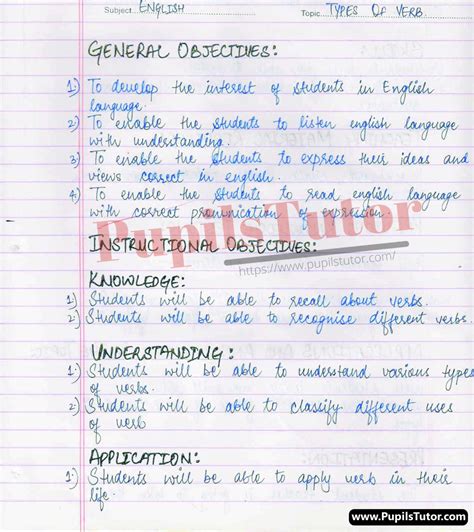 Subject ENGLISH Topic TYPES OF VERB.
GENERAL OBJECTIVES:
1) To develop the interest of students in English
language.
2) To enable the students to listen english language
with understanding.
3) To enable the students to express their ideas and
views correct in english.
4) To enable the students to read english language
with correct pronunication of expression.
PupilsTutor
INSTRUCTIONAL OBJECTIVES:
https://www.pupilstutor.com/
KNOWLEDGE:
1) Students will be able to recall about verbs.
2) Students will be able to recognise different verbs.
UNDERSTANDING:
1) Students will be able to understand various types
of verbs.
2) Students will be able to classify different uses
of verb
APPLICATION:
1) Students will be able to apply verb in their
life.
www.PupilsTutor.com